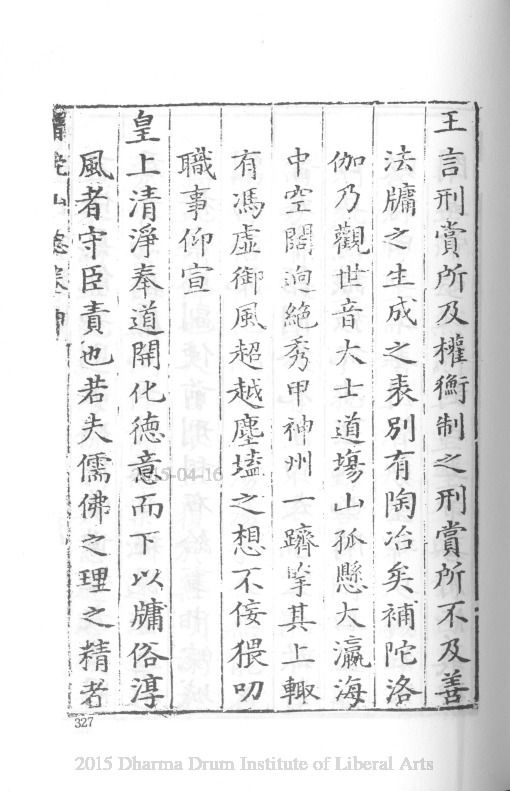 王言刑賞所及權衡制之刑賞所不及善
法牗之生成之表別有陶冶矣補陀洛
伽乃觀世音大士道場山孤懸大瀛海
中空闊逈絕秀甲神州一躋峯其上輙
有馮虛御風超越塵壒之想不佞猥叨
職事仰宣
皇上清淨奉道開化德意而下以牗俗淳
風者守臣責也若夫儒佛之理之精者
山志
327
15-04-16
2015 Dharma Drum Institute of Liberal Arts